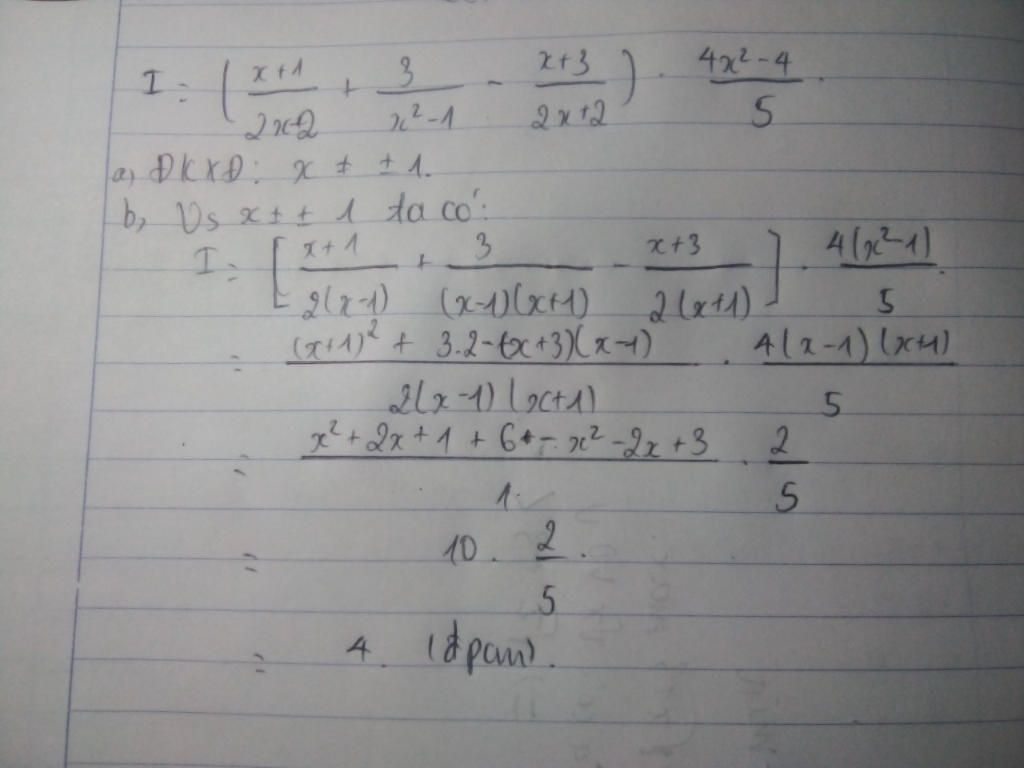 I = ( x+1/2x-2 + 3/x²-1 - x+3/2x+2 ) . 4x²-4/5 .
a, ĐKXĐ: x ≠ ± 1.
b, Vs x ≠ ± 1 ta có:
I = [ x+1/2(x-1) + 3/(x-1)(x+1) - x+3/2(x+1) ] . 4(x²-1)/5 .
= (x+1)² + 3.2-(x+3)(x-1)/2(x-1)(x+1) . 4(x-1)(x+1)/5
= x² + 2x + 1 + 6 - x² - 2x + 3/1. . 2/5
= 10 . 2/5 .
= 4. (đpcm).